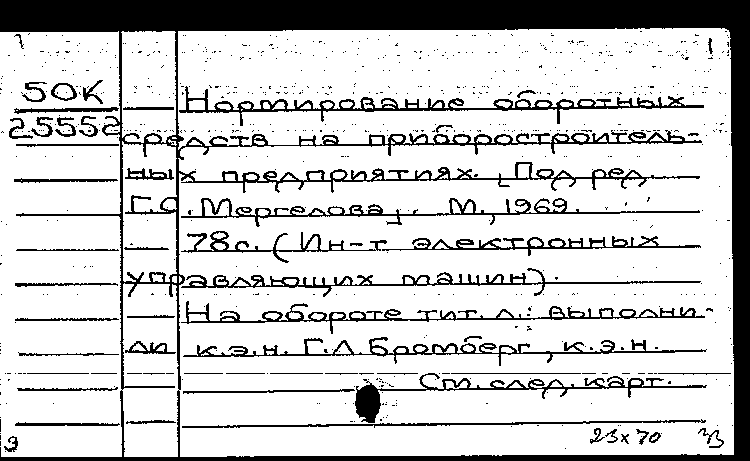 50К
25552
Нормирование оборотных
средств на приборостроитель-
ных предприятиях. [Под ред.
Г.С. Мергелова]. М., 1969.
78с. (Ин-т электронных
управляющих машин).
На обороте тит. л.: выполни-
ли к.э.н. Г.Л. Бромберг, к.э.н.
См. след. карт.
23х70